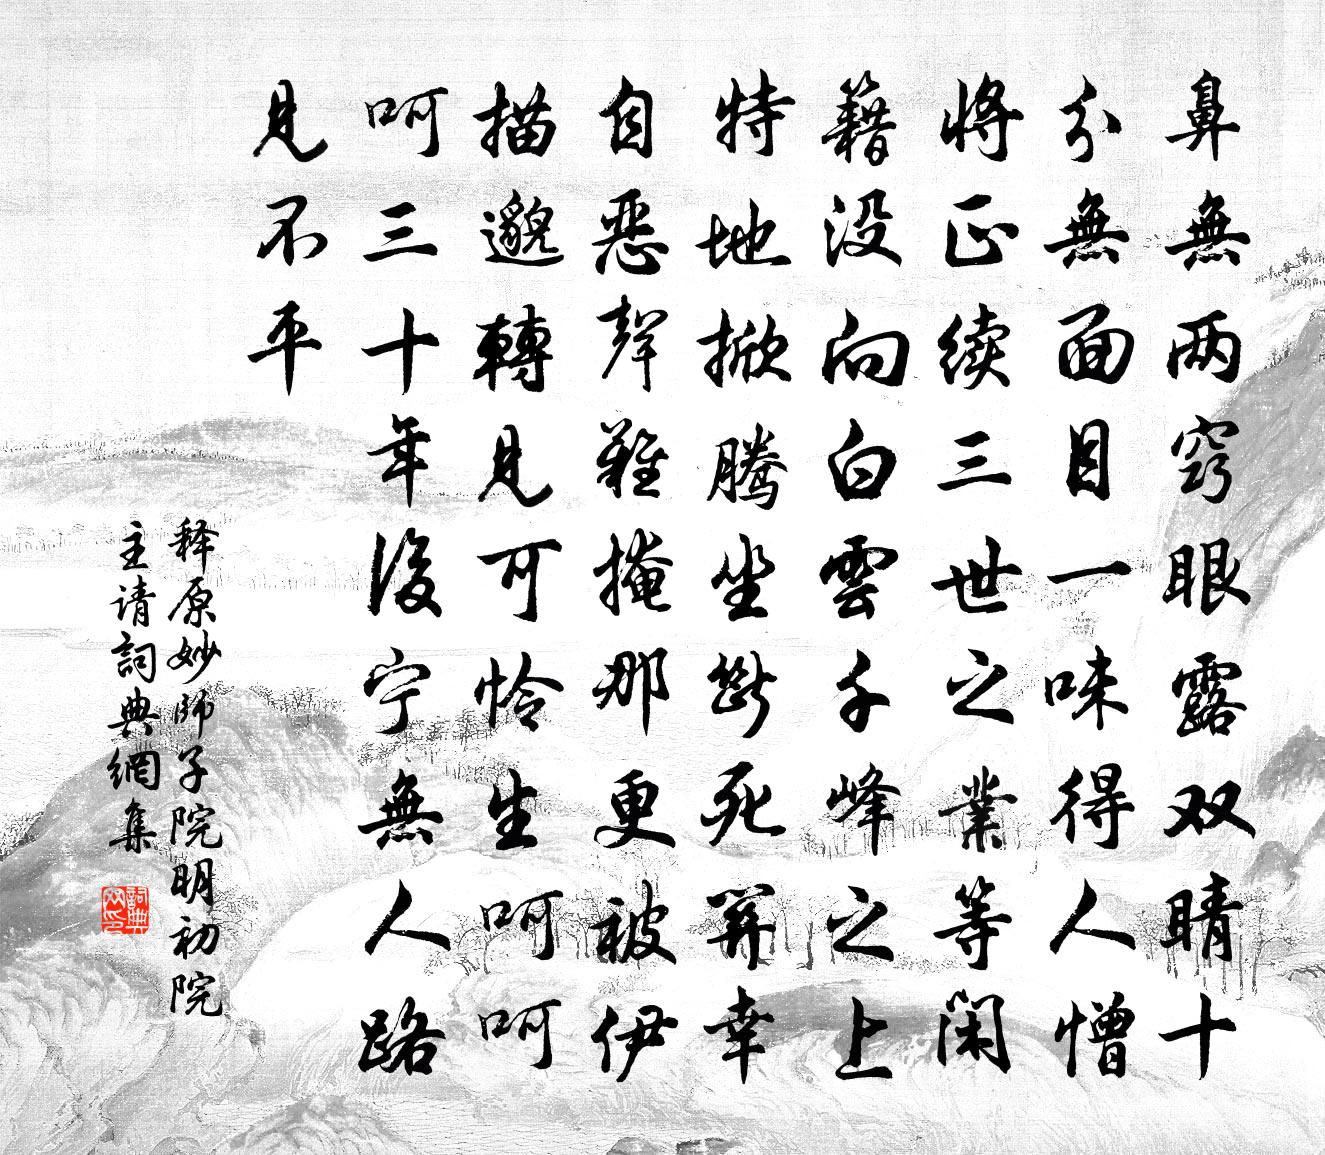 鼻無两窍眼露双睛十
分無面目一味得人憎
将正续三世之業等闲
籍没向白雲千峰之上
特地掀腾坐断死關幸
自恶聲難掩那更被伊
描邈轉見可怜生呵呵
呵三十年後宁無人路
見不平
释原妙师子院明初院
主请詞典網集
詞典网印